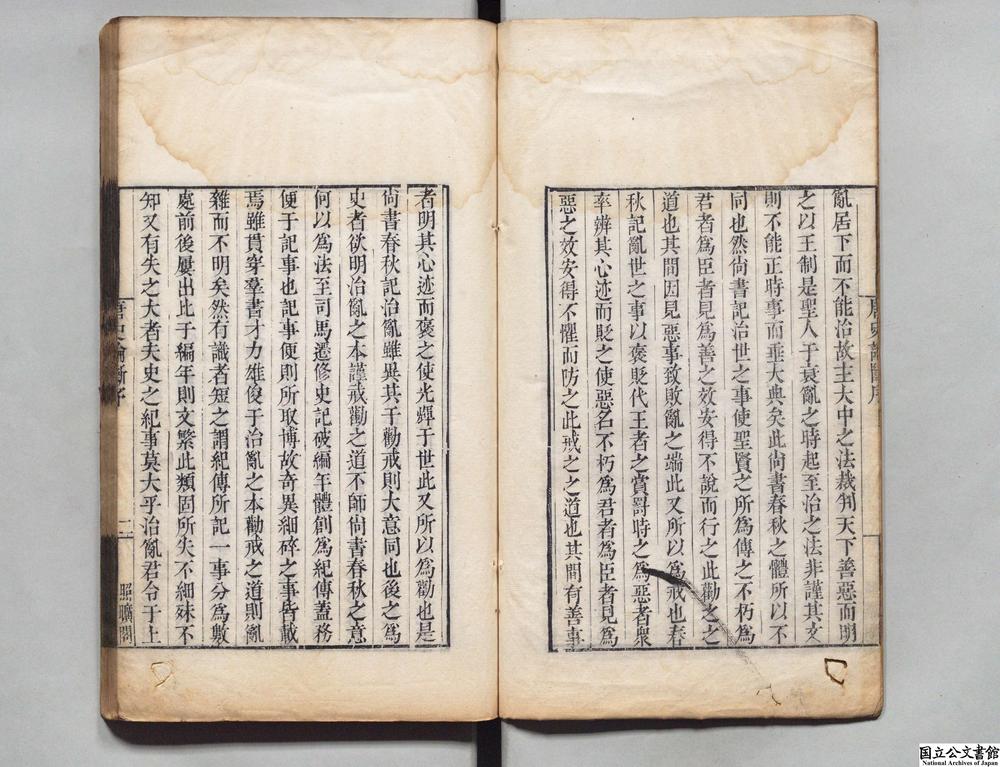 亂居下而不能治故主大中之法裁判天下善惡而明
之以王制是聖人于衰亂之時起至治之法非謹其文
則不能正時事而垂大典矣此尙書春秋之體所以不
同也然尙書記治世之事使聖賢之所爲傳之不朽爲
君者爲臣者見爲善之效安得不說而行之此勸之之
道也其間因見惡事致敗亂之端此又所以爲戒也春
秋記亂世之事以褒貶代王者之賞罰時之爲惡者衆
率辨其心迹而貶之使惡名不朽爲君者爲臣者見爲
惡之效安得不懼而防之此戒之之道也其間有善事
唐史論斷序
者明其心迹而褒之使光輝于世此又所以爲勸也是
尙書春秋記治亂雖異其于勸戒則大意同也後之爲
史者欲明治亂之本謹戒勸之道不師尙書春秋之意
何以爲法至司馬遷修史記破編年體創爲紀傳蓋務
便于記事也記事便則所取博故奇異細碎之事皆載
焉雖貫穿羣書才力雄俊于治亂之本勸戒之道則亂
雜而不明矣然有識者短之謂紀傳所記一事分爲數
處前後屢出比于編年則文繁此類固所失不細殊不
知又有失之大者夫史之紀事莫大乎治亂君令于上
唐史論斷序
二
照曠閣
国立公文書館
National Archives of Japan